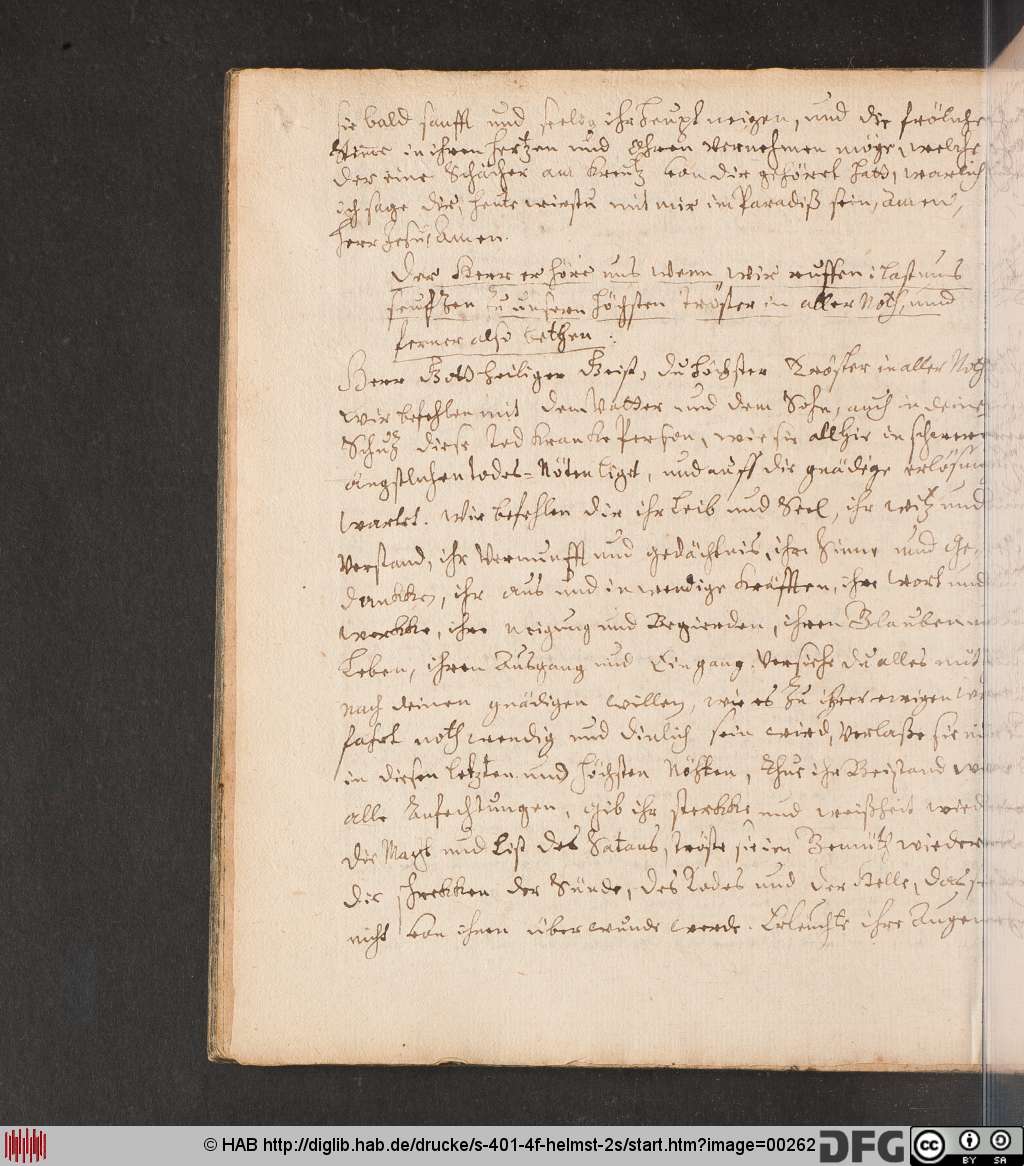 sie bald sanfft und seelig ihr Heupt neigen, und die fröliche
Stimme in ihrem Hertzen und Ohren vernehmen möge, welche
der eine Schächer am Kreutz von dir gehöret hatt, warlich
ich sage dir, heute wirstu mit mir im Paradiß sein, Amen,
Herr Jesu Amen.
Der Herr erhöre uns wenn wir ruffen: Last uns
seufftzen zu unsern höchsten Tröster in aller Noth, und
ferner also bethen:
Herr Gott heiliger Geist, du höchster Tröster in aller Noth
wir befehlen mit dem Vatter und dem Sohn, auch in deinen
Schutz diese Tod krancke Person, wie sie allhie in schweren
ängstlichen todes-Nöten liget, und auff die gnädige erlösung
wartet. Wir befehlen dir ihr Leib und Seel, ihr witz und
Verstand, ihr Vernunfft und gedächtnis, ihre Sinne und Ge-
dankken, ihr aus und inwendige kräfften, ihre Wort und
werkke, ihre neigung und Begierden, ihren Glauben und
Leben, ihren Ausgang und Eingang. Versiehe du alles mit
nach deinen gnädigen willen, wie es zu ihrer ewigen
fahrt nothwendig und dinlich sein wird, Verlaße sie
in diesen letzten und höchsten Nöhten, Thue ihr Beistand
alle Anfechtungen, gib ihr sterkke und weißheit wied
die Macht und List des Satans, tröste sie im Gemüth wieder
die schrekken der Sünde, des Todes und der Helle, das sie
nicht von ihnen überwunde werde. Erleuchte ihre Augen
© HAB http://diglib.hab.de/drucke/s-401-4f-helmst-2s/start.htm?image=00262
DFG
cc
BY SA